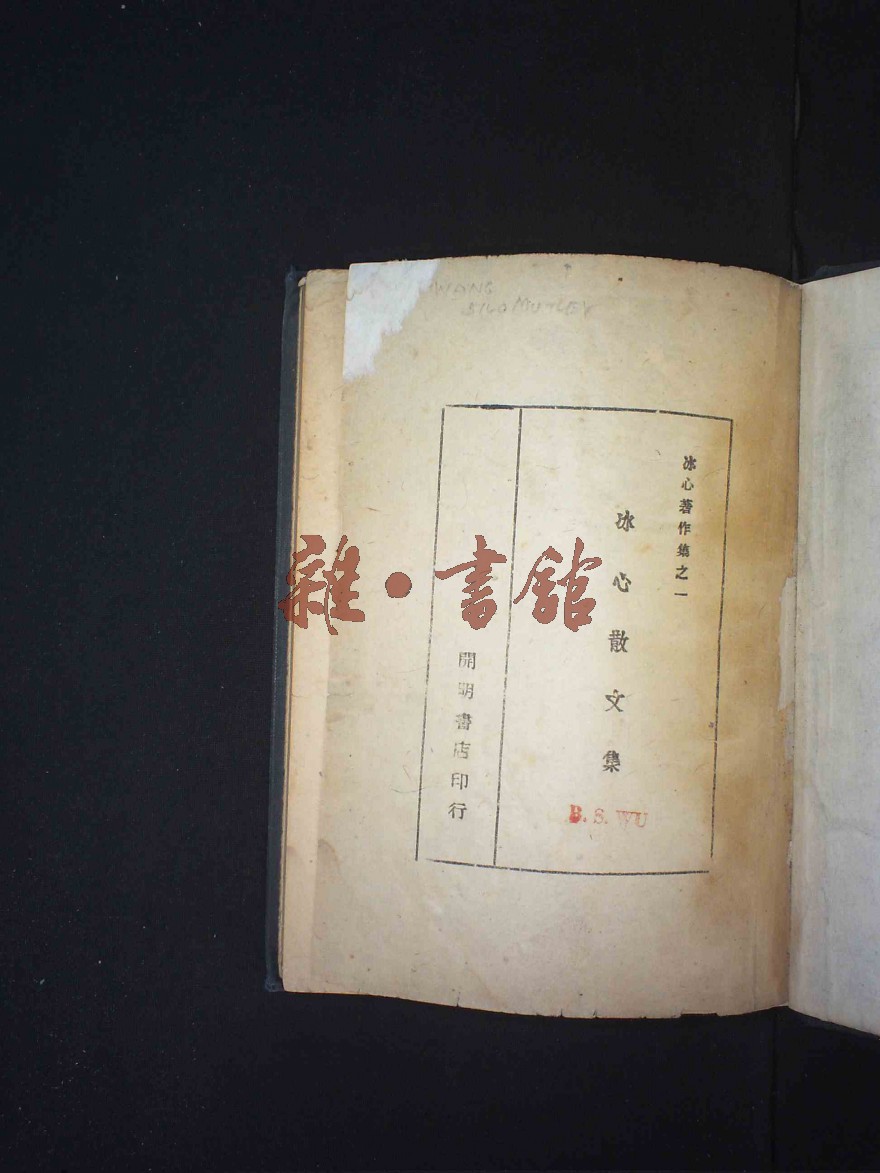 WANG
冰心著作集之一
冰心散文集
開明書店印行
B. S. WU
雜·書館